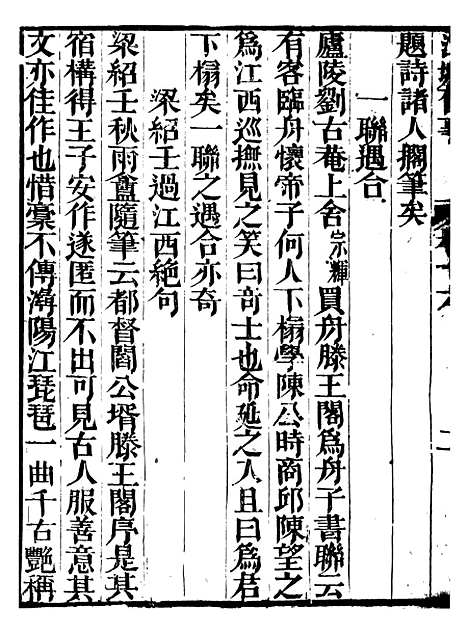 題詩諸人擱筆矣
一聯遇合
廬陵劉古菴上舍宗輝買舟滕王閣爲舟子書聯云
有客臨舟懷帝子何人下榻學陳公時商邱陳望之
爲江西巡撫見之笑曰奇士也命延之入且曰爲君
下榻矣一聯之遇合亦奇
梁紹壬過江西絕句
梁紹壬秋雨盦隨筆云都督閻公壻滕王閣序是其
宿構得王子安作遂匿而不出可見古人服善意其
文亦佳作也惜稾不傳潯陽江琵琶一曲千古艷稱